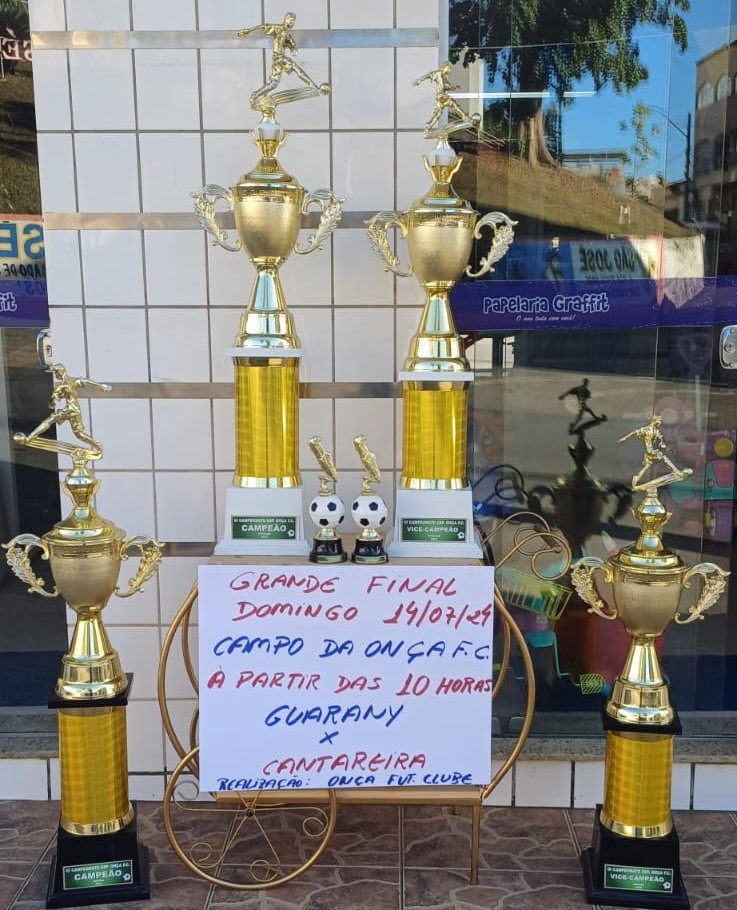 SÉ
SÉ
ADO DE
fit
SÃO JOSÉ
Papelaria Graffit
O ano todo com você!
III CAMPEONATO SUP. ONÇA F.C.
CAMPEÃO
III CAMPEONATO SUP. ONÇA F.C.
VICE-CAMPEÃO
GRANDE FINAL
DOMINGO 14/07/24
CAMPO DA ONÇA F.C.
À PARTIR DAS 10 HORAS
GUARANY
X
CANTAREIRA
REALIZAÇÃO: ONÇA FUT. CLUBE
III CAMPEONATO SUP. ONÇA F.C.
CAMPEÃO
III CAMPEONATO SUP. ONÇA F.C.
VICE-CAMPEÃO